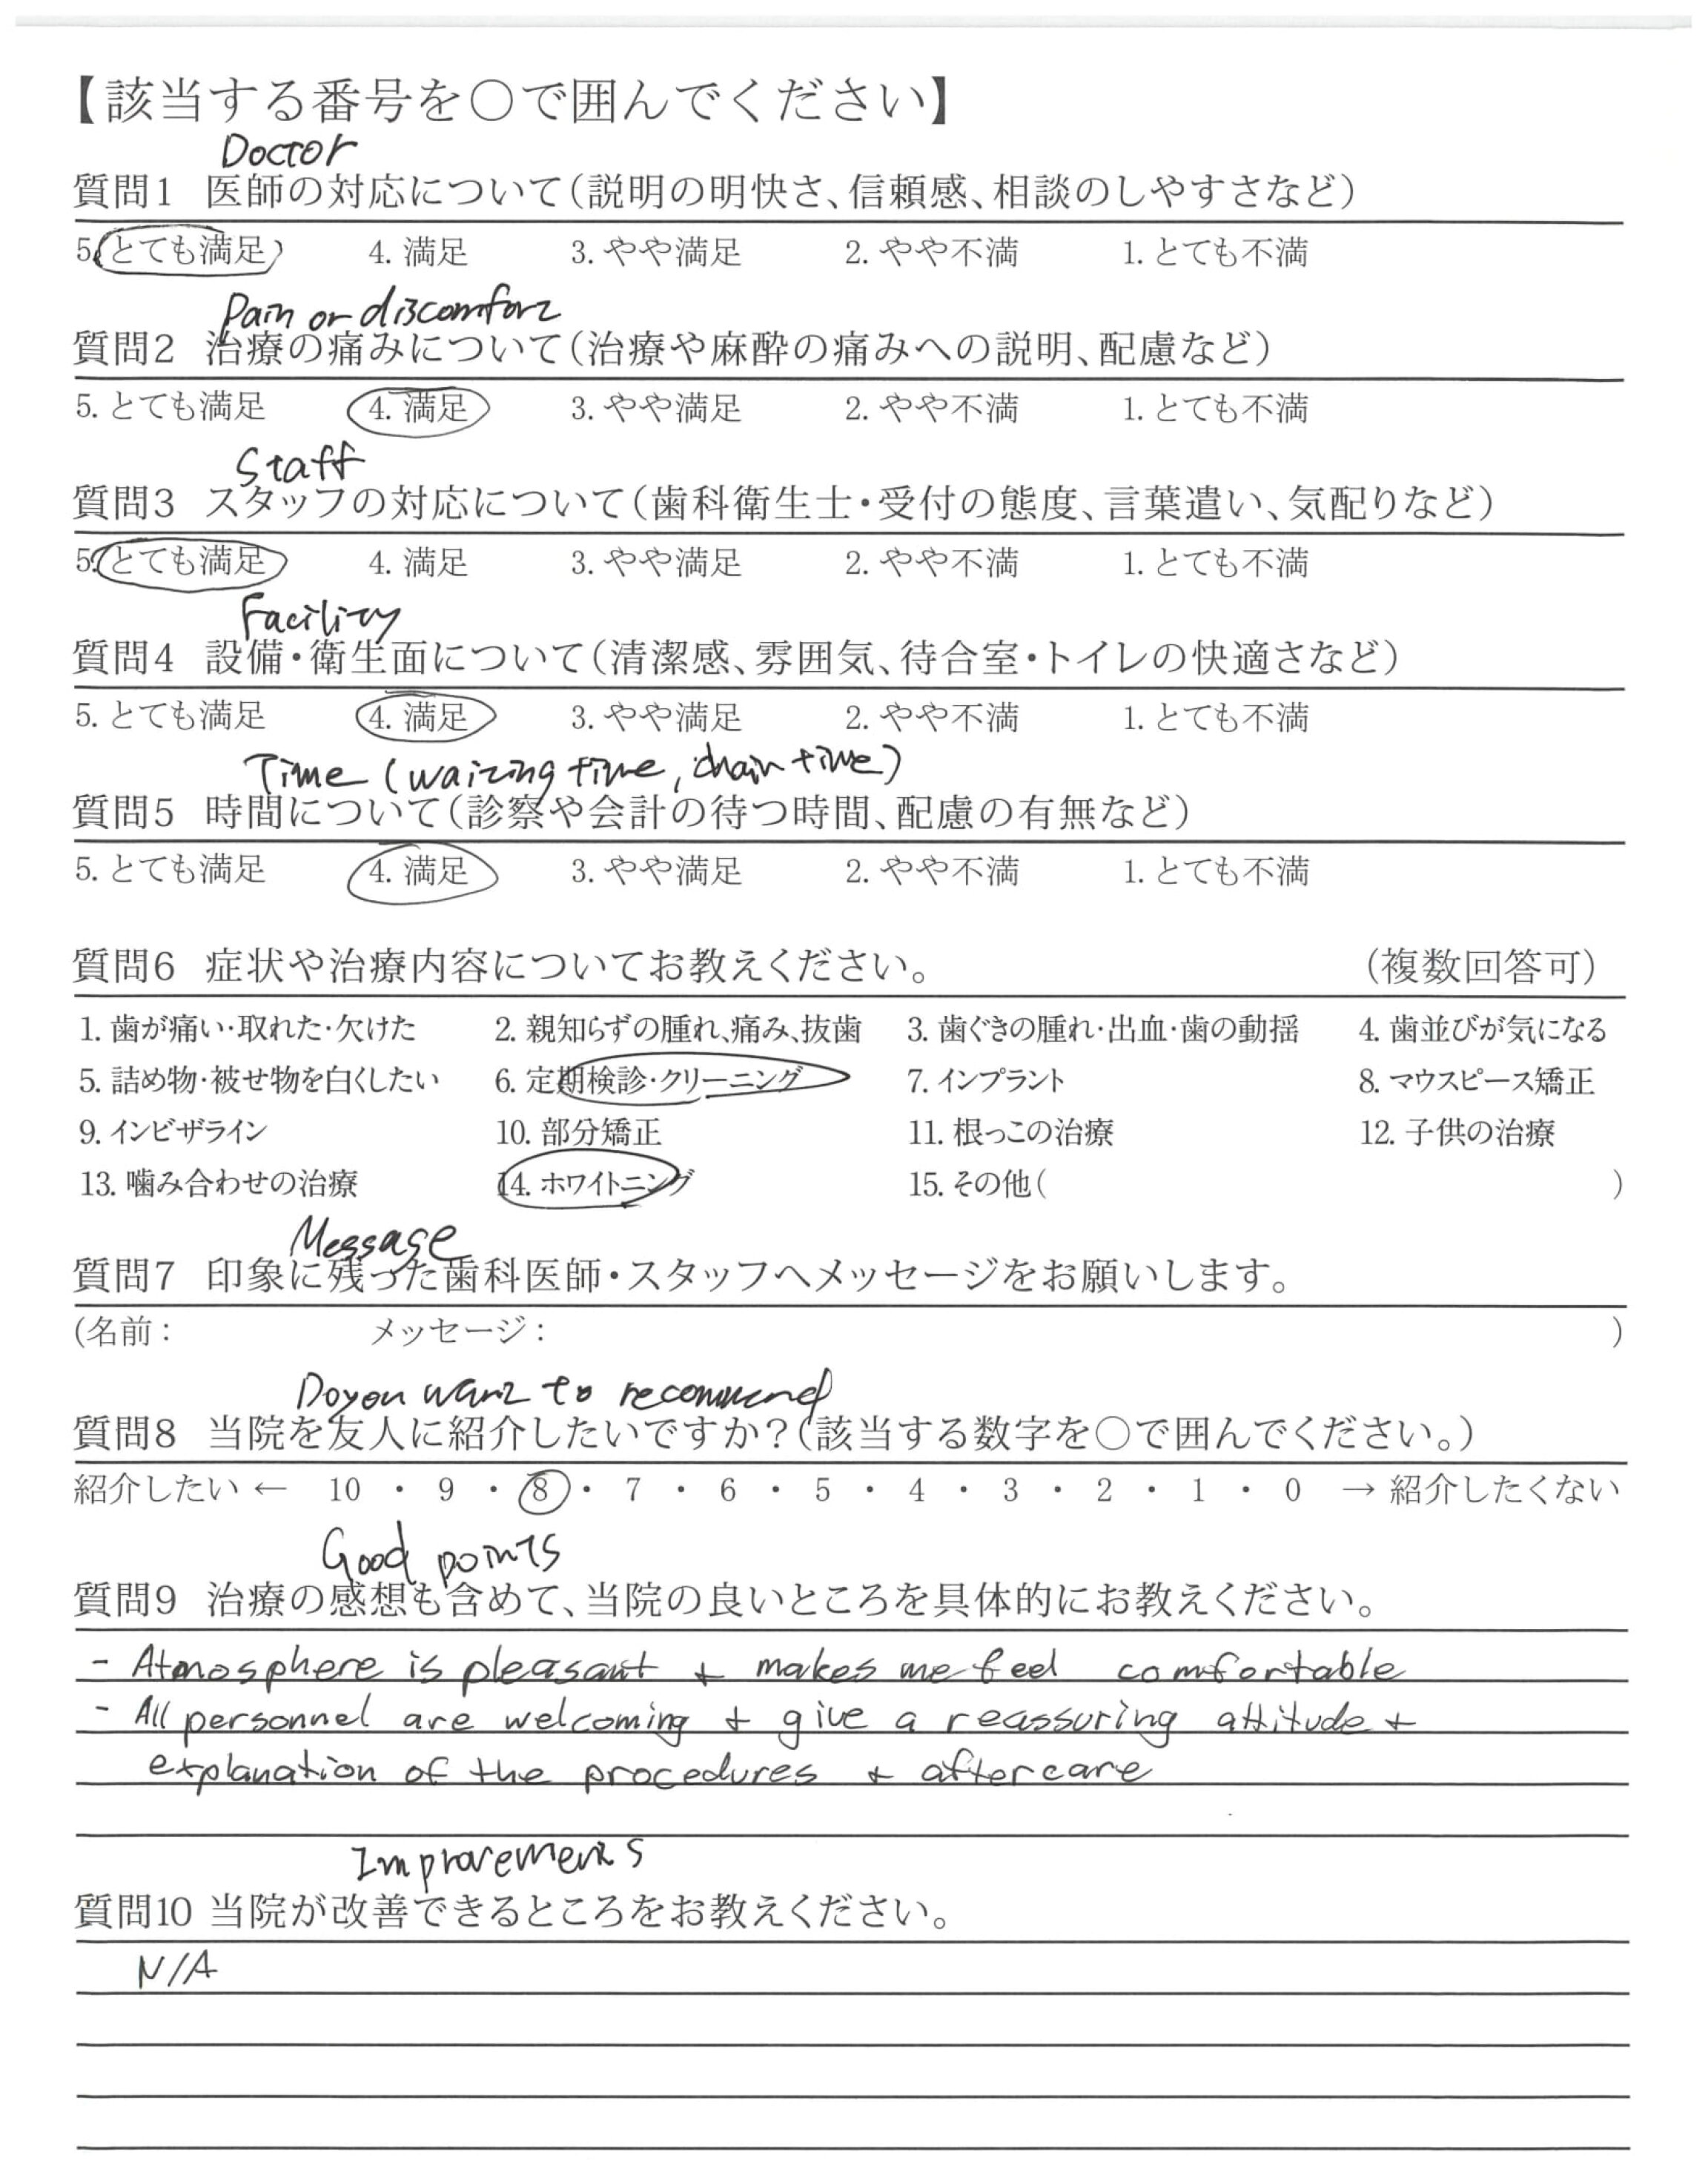 【該当する番号を○で囲んでください】
Doctor
質問1 医師の対応について(説明の明快さ、信頼感、相談のしやすさなど)
5.とても満足 4.満足 3.やや満足 2.やや不満 1.とても不満
Pain or discomfort
質問2 治療の痛みについて(治療や麻酔の痛みへの説明、配慮など)
5.とても満足 4.満足 3.やや満足 2.やや不満 1.とても不満
Staff
質問3 スタッフの対応について(歯科衛生士・受付の態度、言葉遣い、気配りなど)
5.とても満足 4.満足 3.やや満足 2.やや不満 1.とても不満
Facility
質問4 設備・衛生面について(清潔感、雰囲気、待合室・トイレの快適さなど)
5.とても満足 4.満足 3.やや満足 2.やや不満 1.とても不満
Time (waiting time, chair time)
質問5 時間について(診察や会計の待つ時間、配慮の有無など)
5.とても満足 4.満足 3.やや満足 2.やや不満 1.とても不満
質問6 症状や治療内容についてお教えください。 (複数回答可)
1.歯が痛い・取れた・欠けた 2.親知らずの腫れ、痛み、抜歯 3.歯ぐきの腫れ・出血・歯の動揺 4.歯並びが気になる
5.詰め物・被せ物を白くしたい 6.定期検診・クリーニング 7.インプラント 8.マウスピース矯正
9.インビザライン 10.部分矯正 11.根っこの治療 12.子供の治療
13.噛み合わせの治療 14.ホワイトニング 15.その他( )
Message
質問7 印象に残った歯科医師・スタッフへメッセージをお願いします。
(名前: メッセージ: )
Do you want to recommend
質問8 当院を友人に紹介したいですか?(該当する数字を○で囲んでください。)
紹介したい ← 10 ・ 9 ・ 8 ・ 7 ・ 6 ・ 5 ・ 4 ・ 3 ・ 2 ・ 1 ・ 0 → 紹介したくない
Good points
質問9 治療の感想も含めて、当院の良いところを具体的にお教えください。
- Atmosphere is pleasant + makes me feel comfortable
- All personnel are welcoming + give a reassuring attitude +
explanation of the procedures + aftercare
Improvements
質問10 当院が改善できるところをお教えください。
N/A